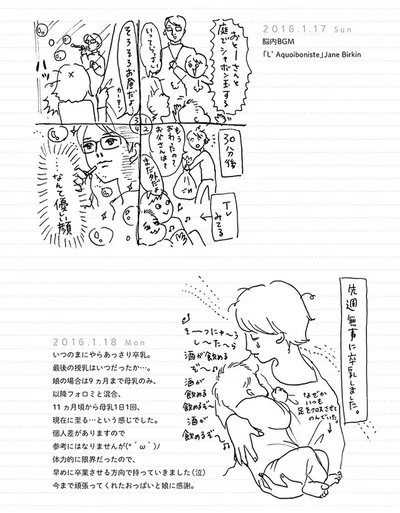 2016.1.17 Sun
脳内BGM
「L' Aquoiboniste」Jane Birkin
おとーさんと
庭でシャボン玉する
いってらっしゃい
30分後
もう
おわったの?
お父さんは?
まだ外だよ
TV
みてる
そろそろお昼だよー
カーテン
なんて優しい顔
1
2
3
4
2016.1.18 Mon
いつのまにやらあっさり卒乳。
最後の授乳はいつだったか…。
娘の場合は9ヵ月まで母乳のみ、
以降フォロミと混合、
11ヵ月頃から母乳1日1回、
現在に至る…という感じでした。
個人差がありますので
参考にはなりませんが(*´ω`)ﾉ
体力的に限界だったので、
早めに卒業させる方向で持っていきました(泣)
今まで頑張ってくれたおっぱいと娘に感謝。
先週無事に卒乳しました。
なぜか
いつも
足をクロスさせて
のんでいた。
き〜つにゃ〜う
し〜た〜ら
酒が飲める
ぞ〜
酒が
飲める
飲めるぞ〜
酒が
飲めるぞ〜